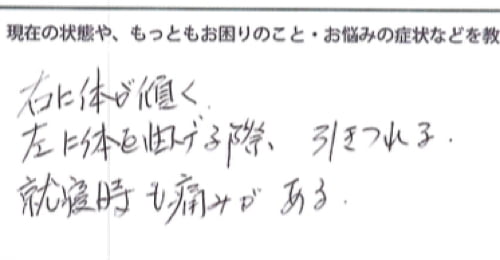 現在の状態や、もっともお困りのこと・お悩みの症状などを教
右に体が傾く
左に体を曲げる際、引きつれる.
就寝時も痛みがある.